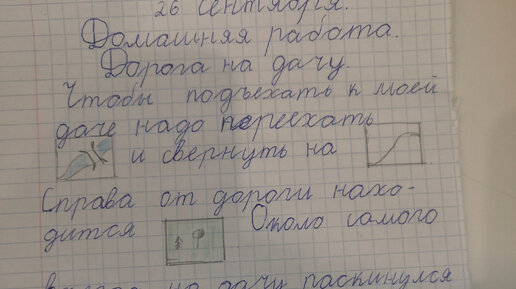 26 сентября.
Домашняя работа.
Дорога на дачу.
Чтобы подъехать к моей
даче надо переехать
и свернуть на
Справа от дороги нахо-
дится . Около самого
на дачу раскинулся